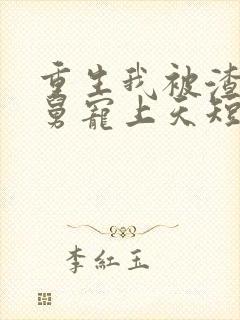 重生我被渣
舅宠上天短
李紅玉